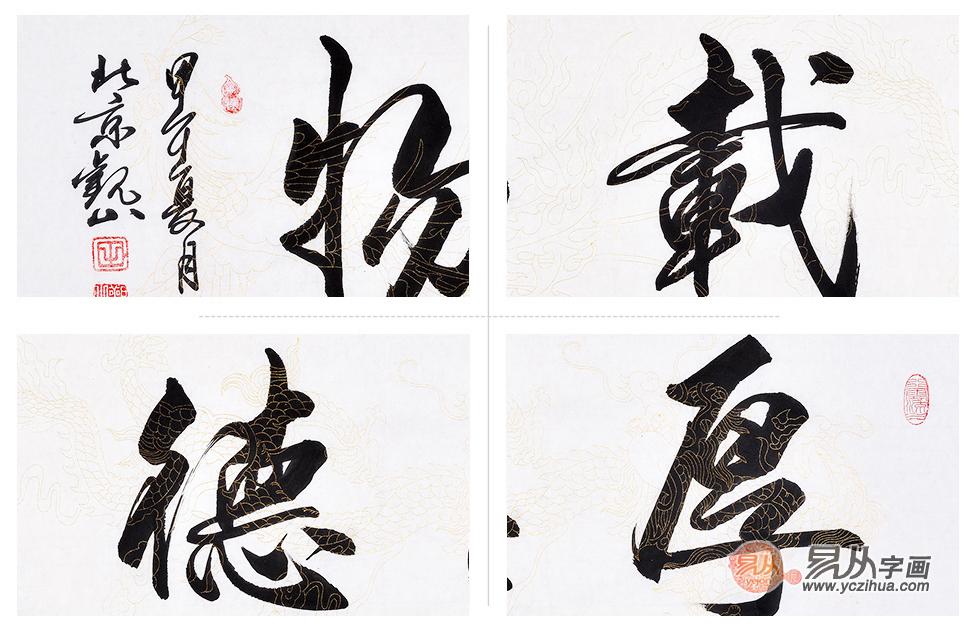 物
甲午夏月
北京觀山
載
德
厚
易从
易从字画
www.yczihua.com